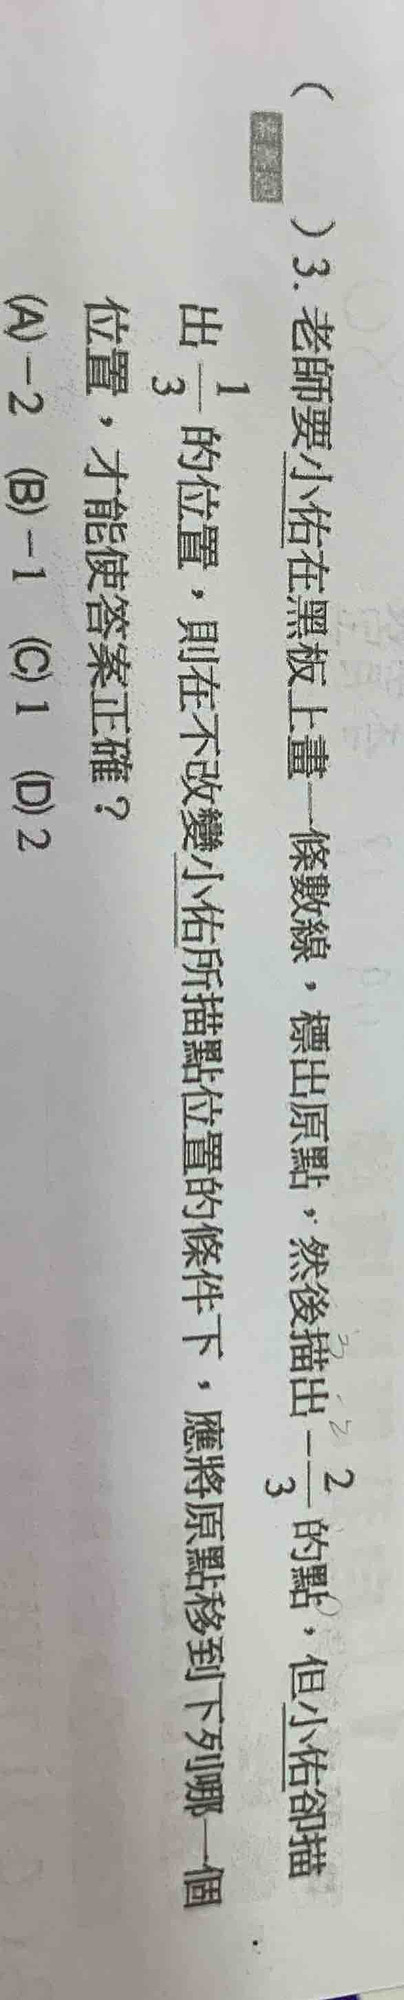 ( )3. 老師要小佑在黑板上畫一條數線,標出原點,然後描出-2/3的點,但小佑卻描
出1/3的位置,則在不改變小佑所描點位置的條件下,應將原點移到下列哪一個
位置,才能使答案正確?
(A)-2 (B)-1 (C)1 (D)2